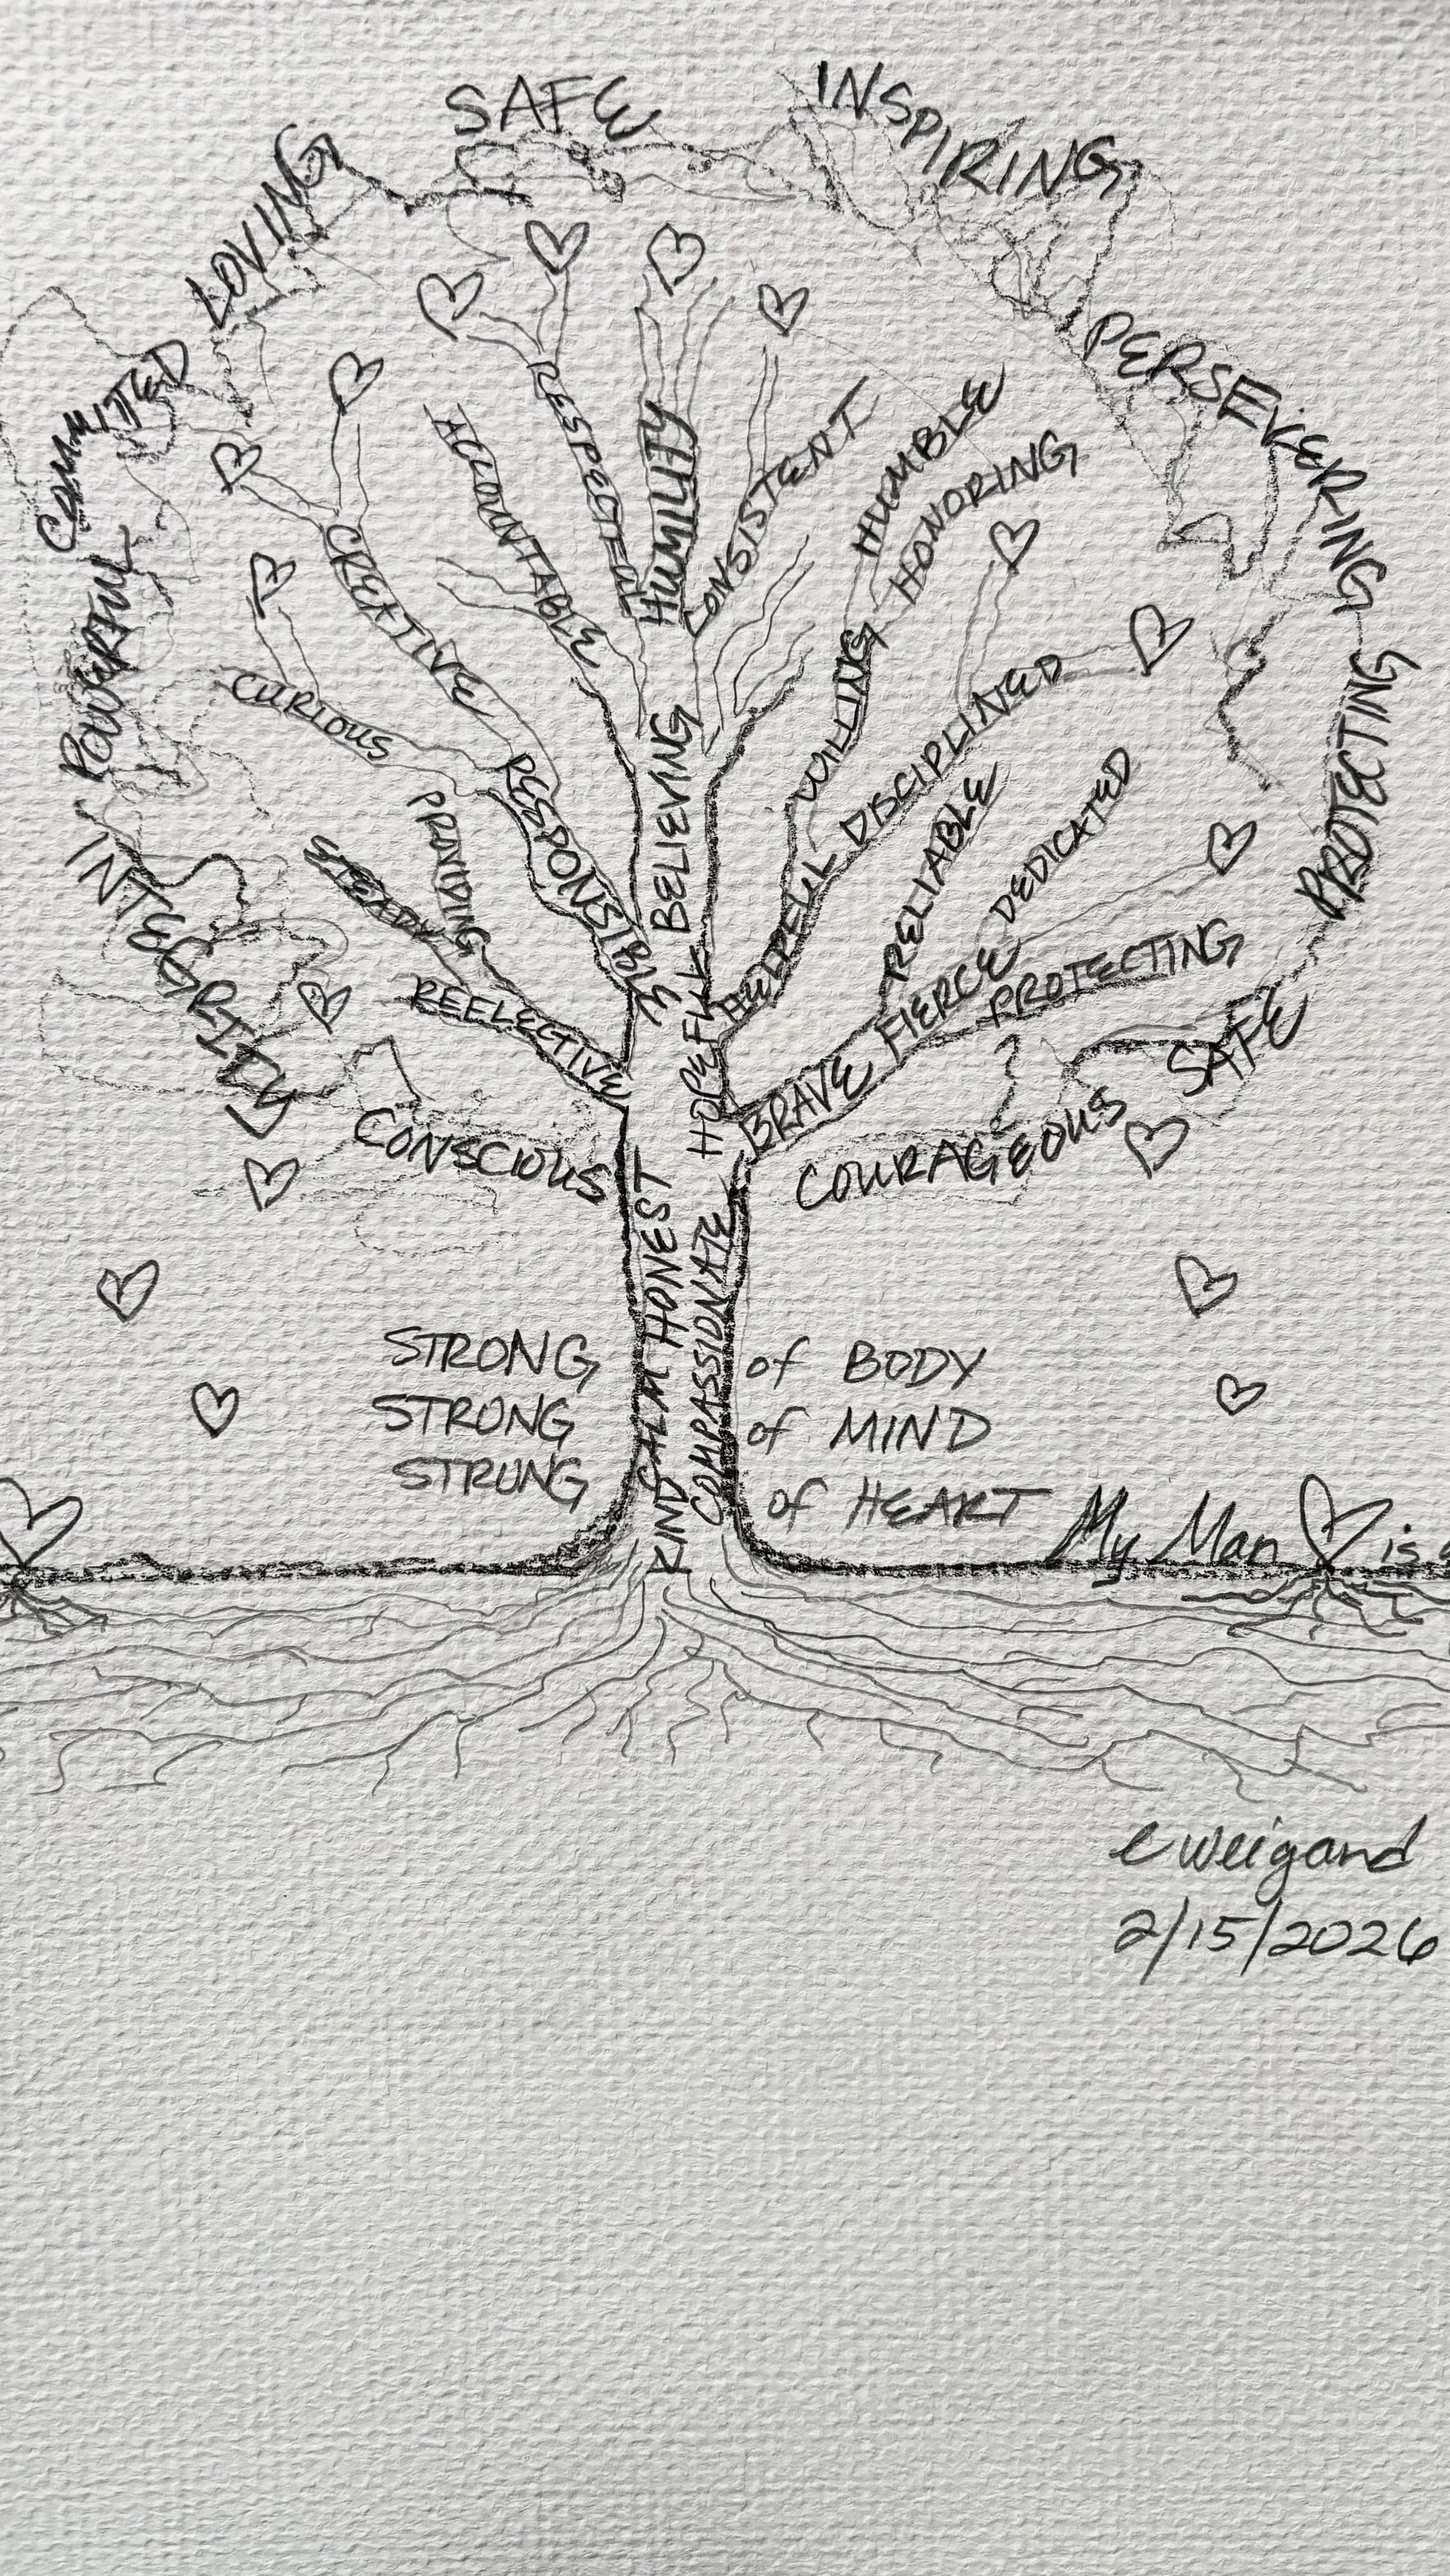 SAFE
INSPIRING
LOVING
COMMITTED
PERSEVERING
POWERFUL
PROTECTING
INTEGRITY
SAFE
CONSCIOUS
COURAGEOUS
ACCOUNTABLE
RESPECTFUL
HUMILITY
CONSISTENT
HUMBLE
HONORING
CREATIVE
CURIOUS
WILLING
DISCIPLINED
RESPONSIBLE
BELIEVING
HELPFUL
RELIABLE
DEDICATED
PROVIDING
STEADY
REFLECTIVE
HOPEFUL
BRAVE FIERCE
PROTECTING
HONEST
COMPASSIONATE
CALM
KIND
STRONG of BODY
STRONG of MIND
STRONG of HEART
My Man is
e weigand
2/15/2026